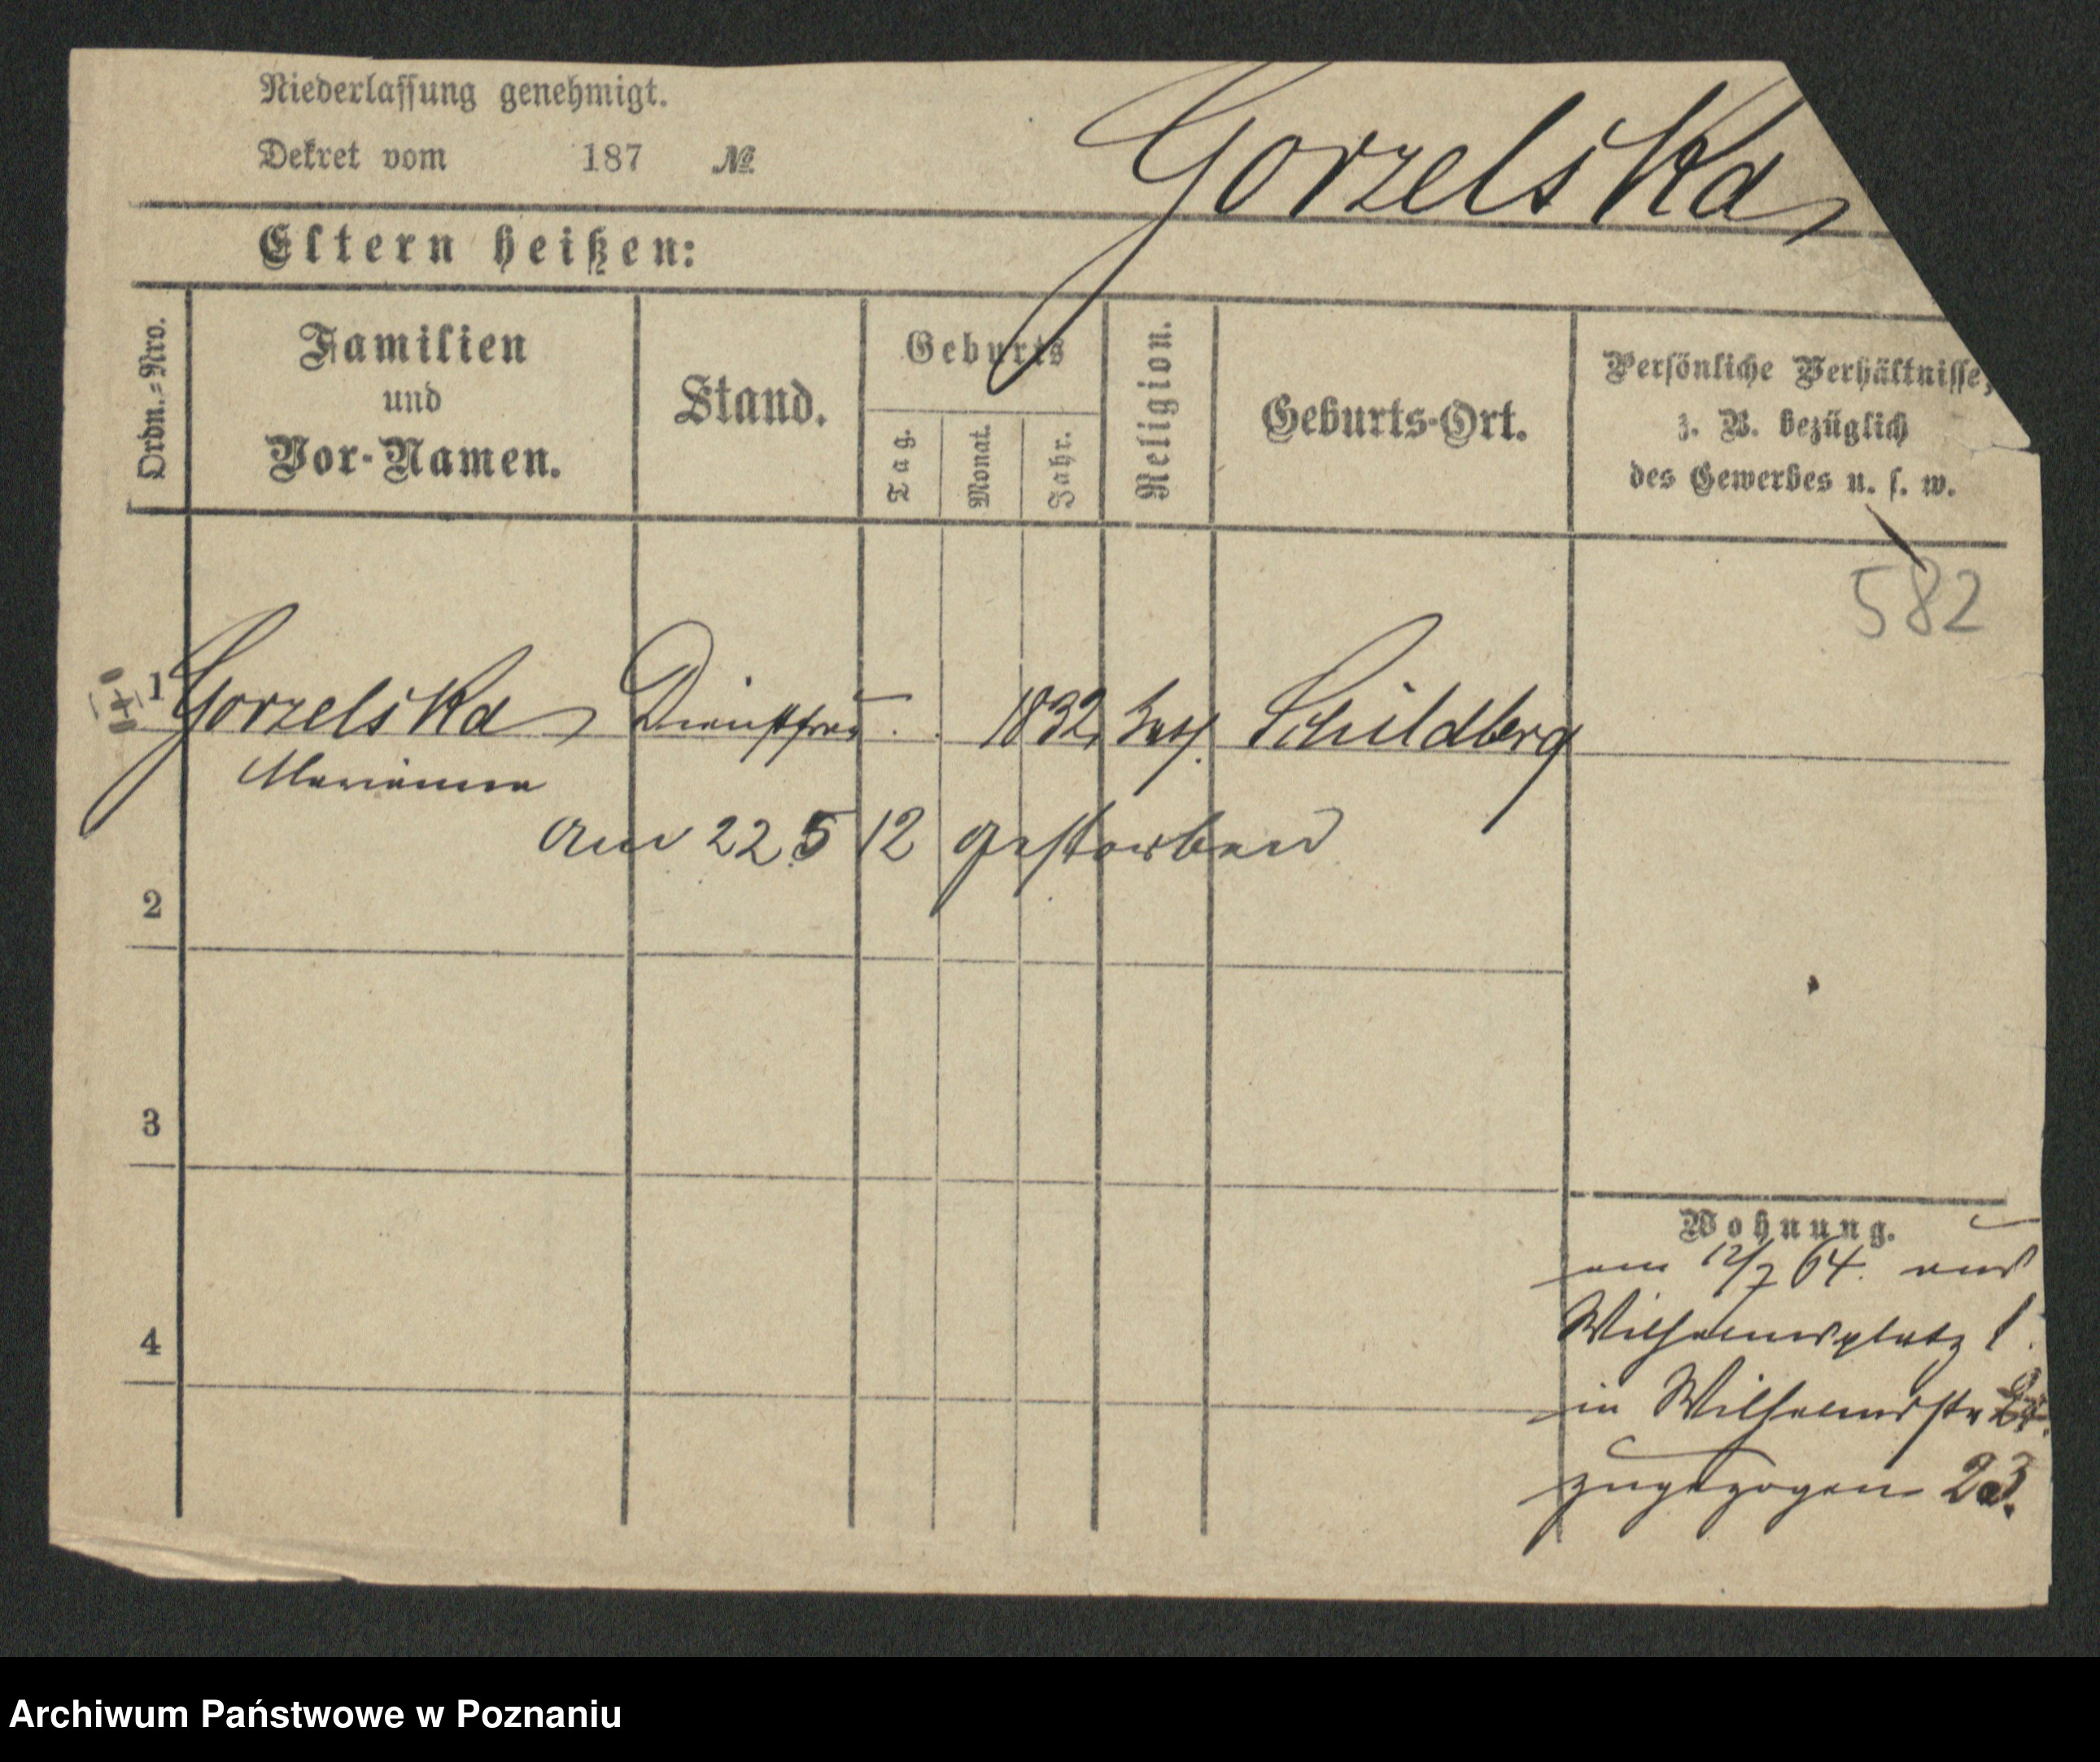 Niederlassung genehmigt.
Dekret vom 187 №
Gorzelska
Eltern heißen:
Ordn.=Nro.
Familien
und
Vor-Namen.
Stand.
Geburts
Tag.
Monat.
Jahr.
Religion.
Geburts-Ort.
Persönliche Verhältnisse,
z. B. bezüglich
des Gewerbes u. s. w.
582
1 Gorzelska Dienstfrau 1832 kath. Schildberg
Marianna
am 22 5 12 gestorben
2
3
4
Wohnung.
am 12/7 64. aus
Wilhelmsplatz 1.
in Wilhelmstr
zugezogen 23.
Archiwum Państwowe w Poznaniu